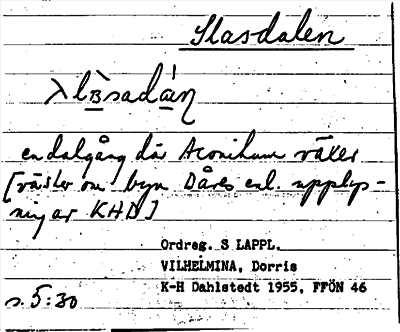 Slasdalen
λlʙ̀sadáŋ
en dalgång där Aconitum växer
[väster om byn Dåres enl. upplys-
ning av KHD]
Ordreg. S LAPPL.
VILHELMINA, Dorris
K-H Dahlstedt 1955, FFÖN 46
s. 5:30